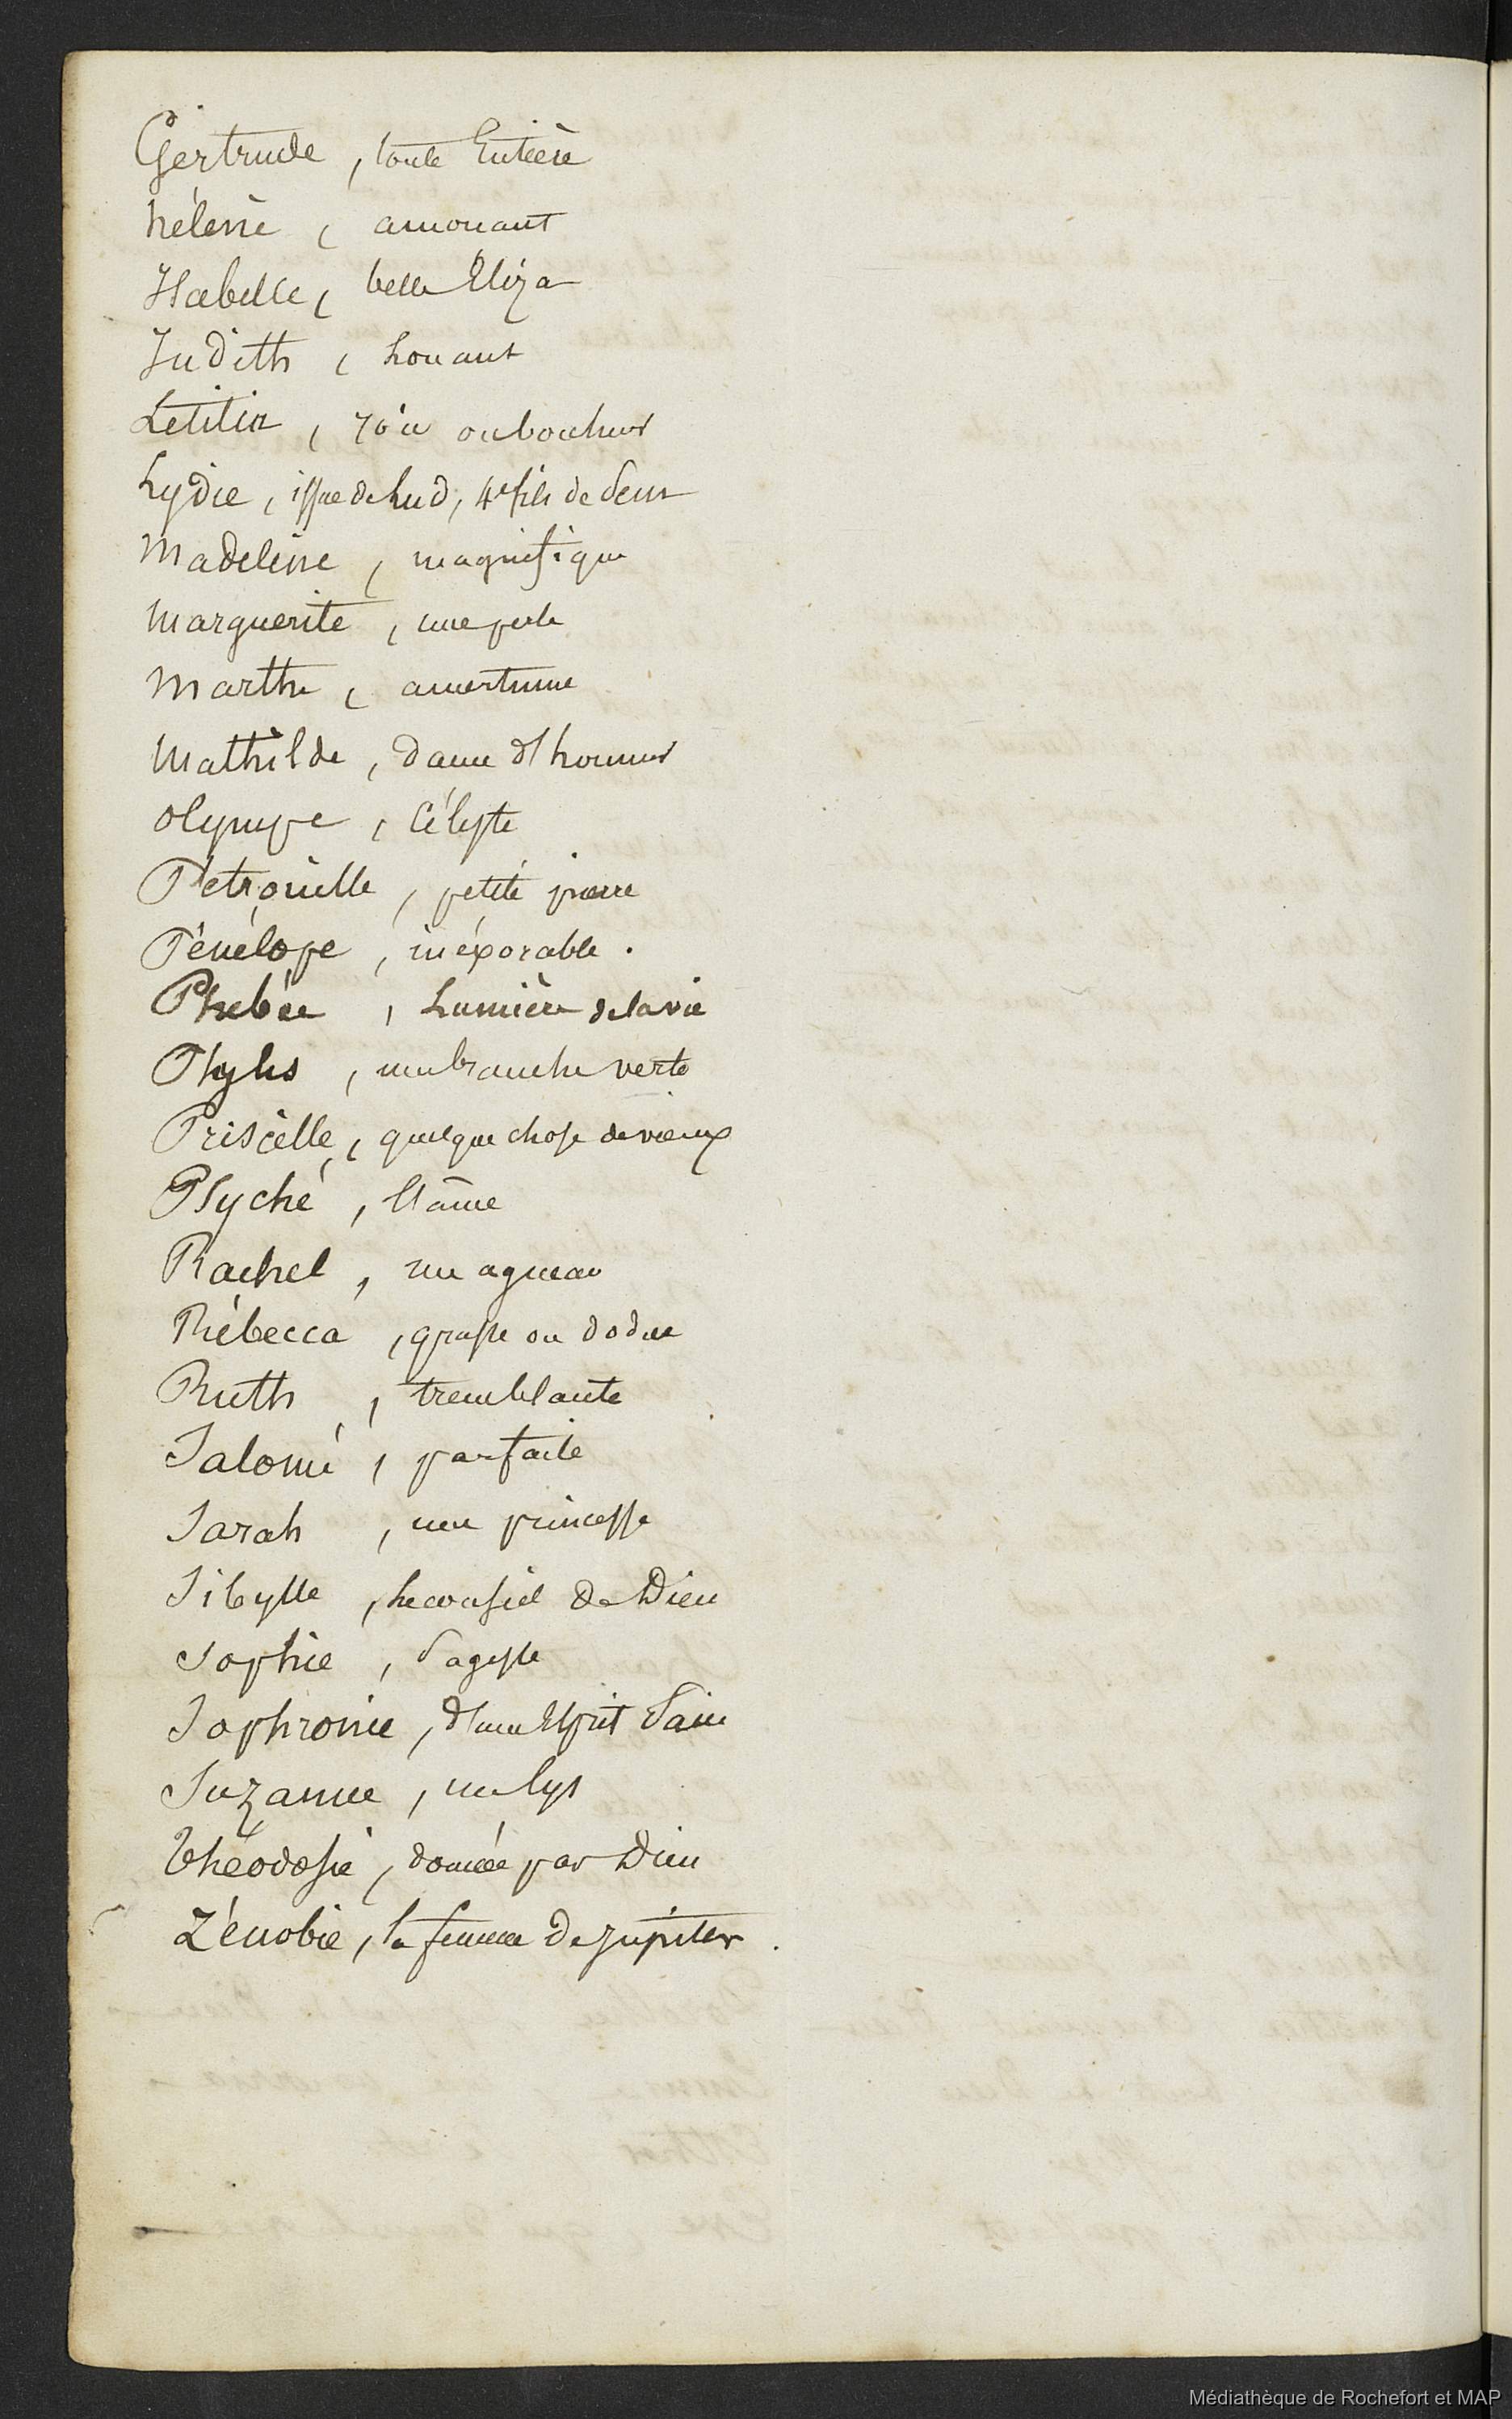 Gertrude, toute Entière
hélène, amonant
Isabelle, belle Eliza
Judith, Louant
Létitia, joie ou bonheur
Lydie, issue de Lud, 4e fils de Sem
Madeleine, magnifique
Marguerite, une perle
Marthe, amertume
Mathilde, dame d'honneur
Olympe, Céleste
Pétronille, petite pierre
Pénélope, inéxorable.
Phebée, Lumière de la vie
Phylis, une branche verte
Priscille, quelque chose de vieux
Psyché, l'âme
Rachel, un agneau
Rébecca, grasse ou dodue
Ruth, tremblante
Salomé, parfaite
Sarah, une princesse
Sibylle, Le conseil de Dieu
Sophie, Sagesse
Sophronie, d'un Esprit Sain
Suzanne, un lys
Théodosie, donnée par Dieu
Zénobie, la femme de Jupiter.
Médiathèque de Rochefort et MAP